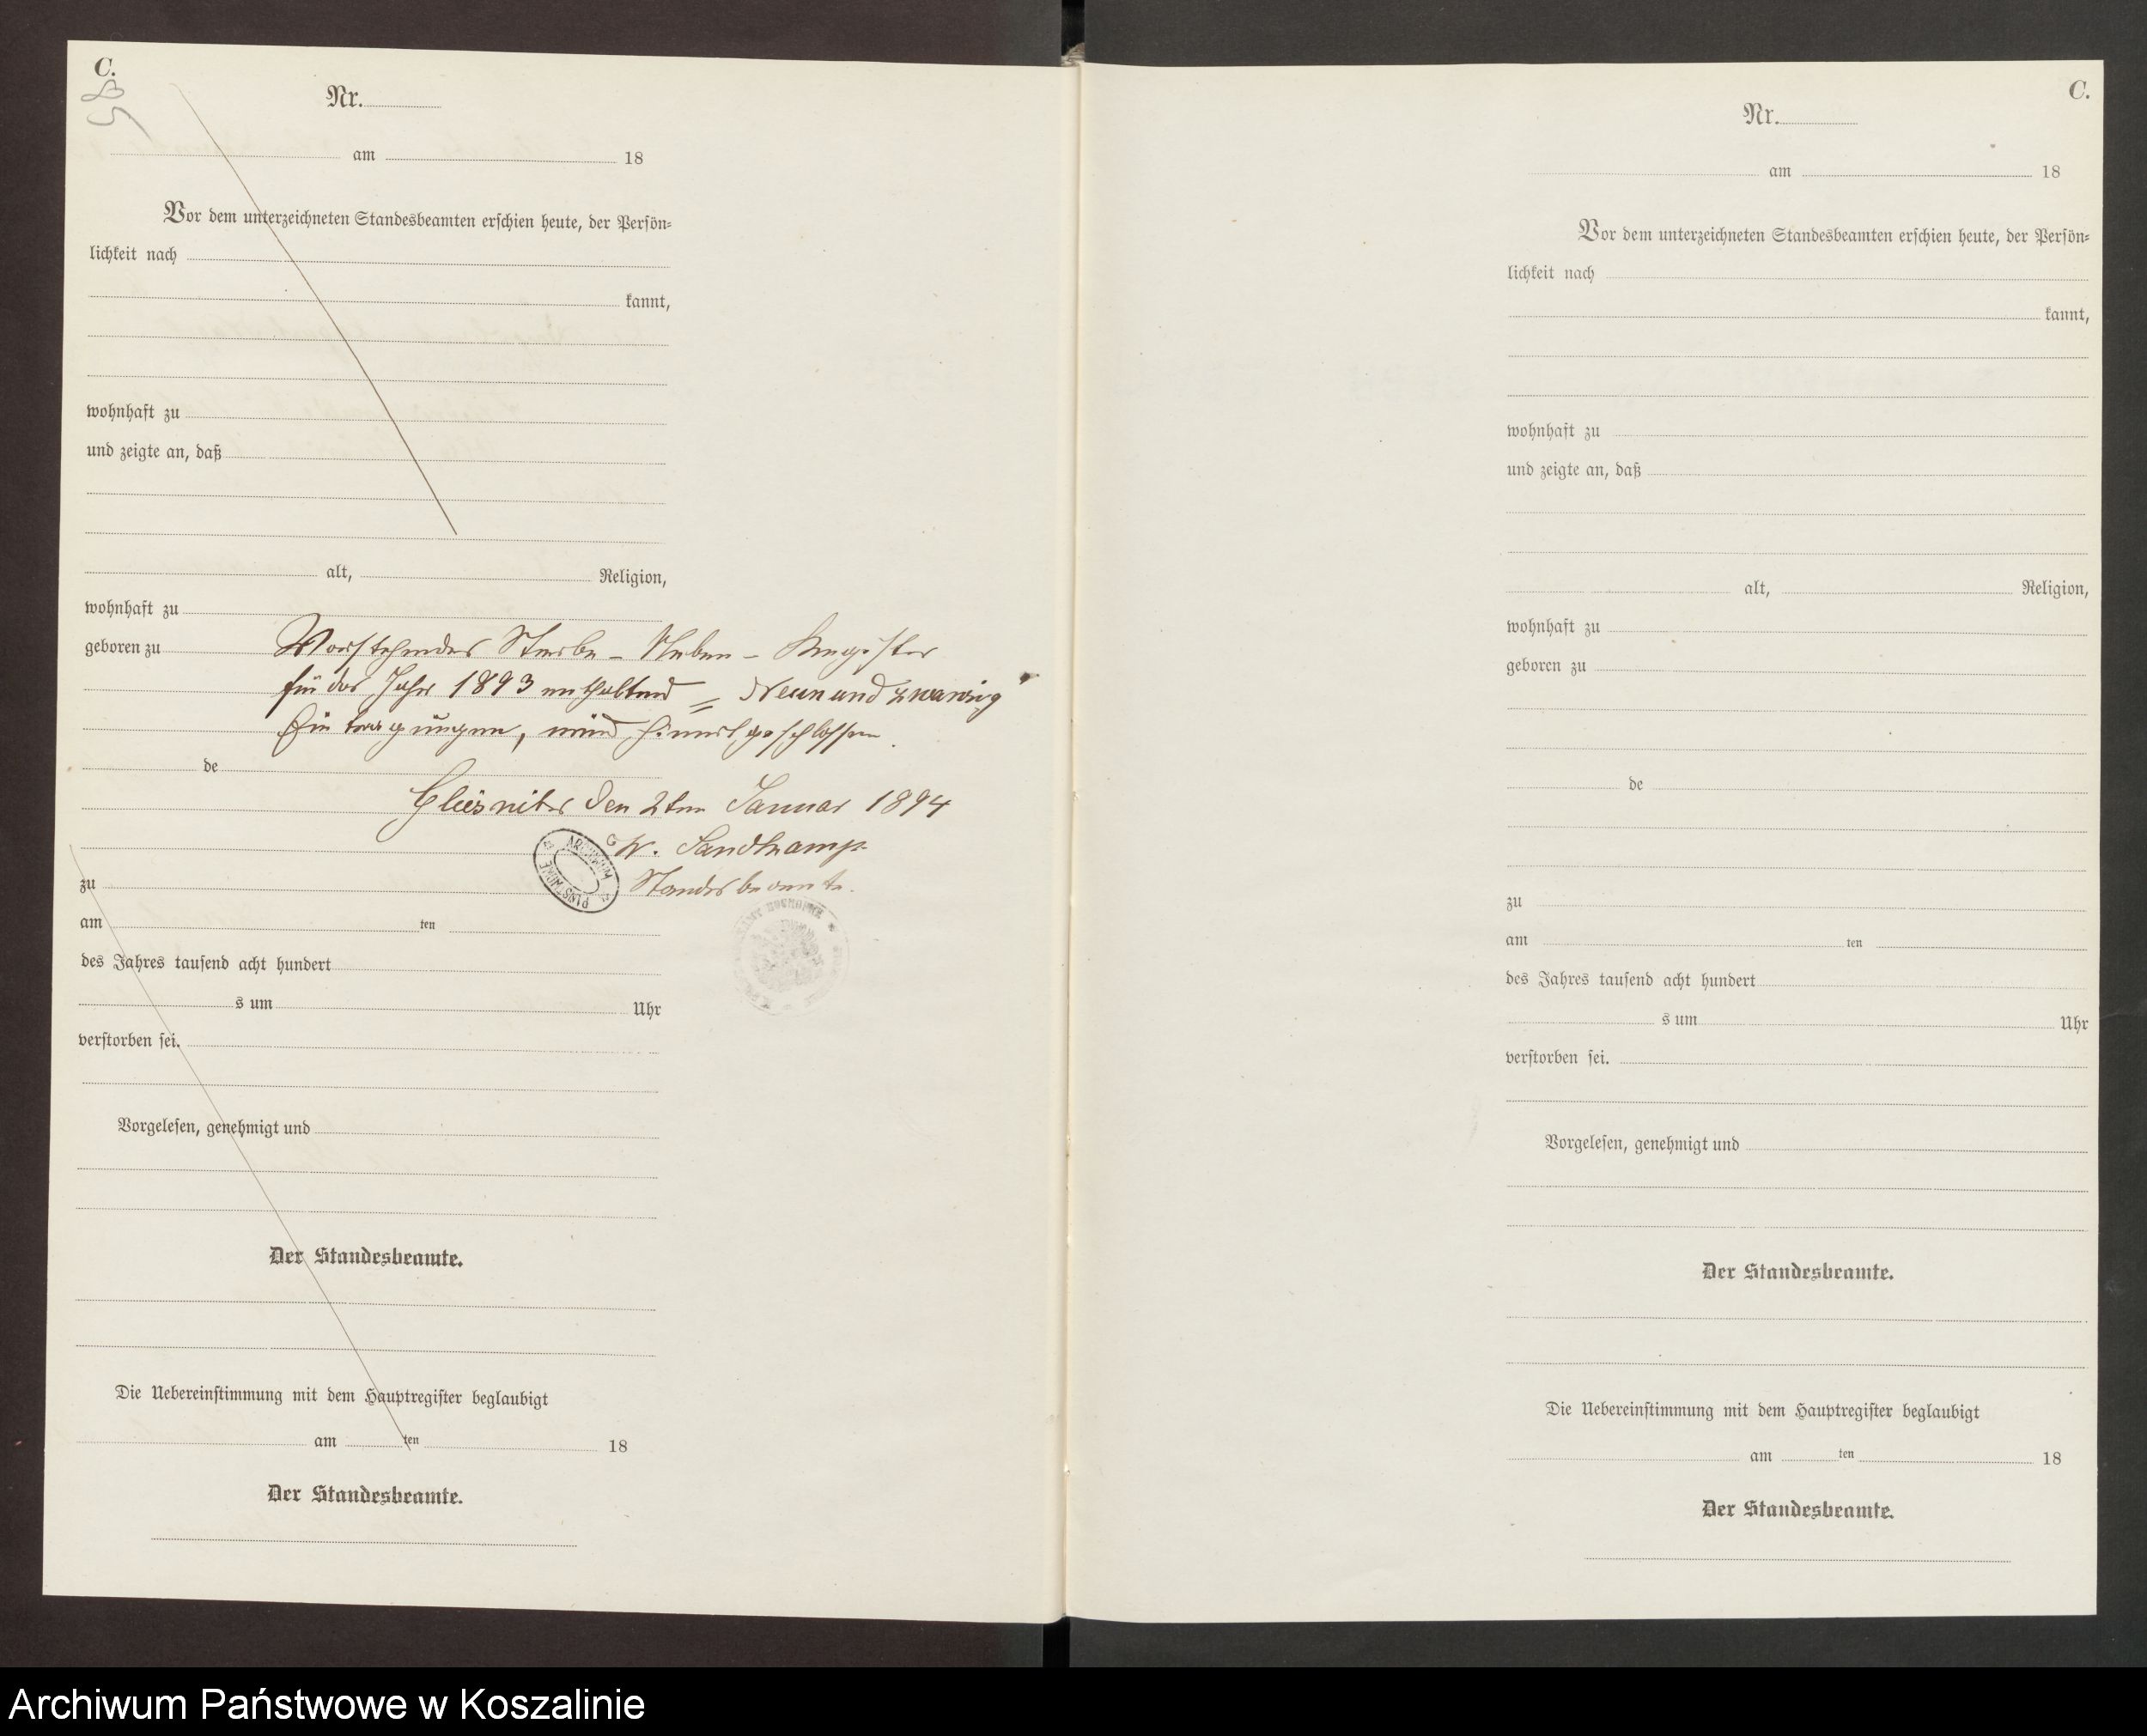 C.
Nr.
am 18
Vor dem unterzeichneten Standesbeamten erschien heute, der Persön-
lichkeit nach
kannt,
wohnhaft zu
und zeigte an, daß
alt, Religion,
wohnhaft zu
geboren zu
Vorstehendes Sterbe-Neben-Register
für das Jahr 1893 enthaltend = Neunundzwanzig
Eintragungen, wird hiermit geschlossen.
de
den 2ten Januar 1894
W. Sandkamp
zu
Standesbeamte.
am ten
des Jahres tausend acht hundert
s um Uhr
verstorben sei.
Vorgelesen, genehmigt und
Der Standesbeamte.
Die Uebereinstimmung mit dem Hauptregister beglaubigt
am ten 18
Der Standesbeamte.
C.
Nr.
am 18
Vor dem unterzeichneten Standesbeamten erschien heute, der Persön-
lichkeit nach
kannt,
wohnhaft zu
und zeigte an, daß
alt, Religion,
wohnhaft zu
geboren zu
de
zu
am ten
des Jahres tausend acht hundert
s um Uhr
verstorben sei.
Vorgelesen, genehmigt und
Der Standesbeamte.
Die Uebereinstimmung mit dem Hauptregister beglaubigt
am ten 18
Der Standesbeamte.
Archiwum Państwowe w Koszalinie